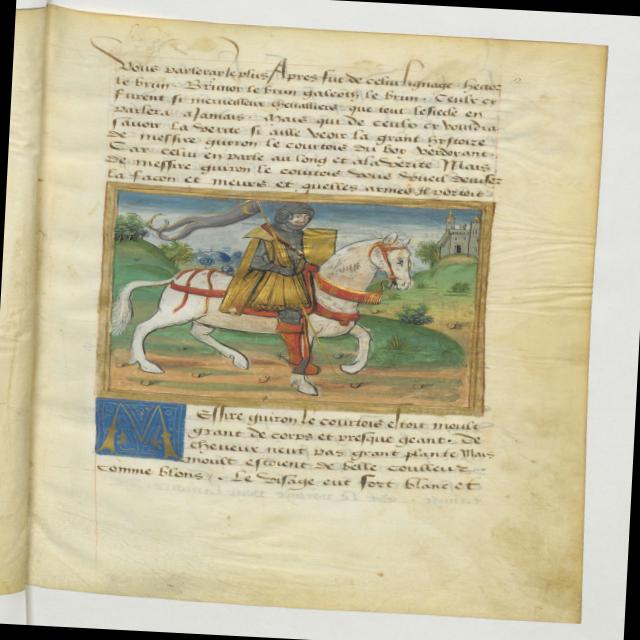 Vous parlerar le plus Apres fut de celui lignage hector
le brun. Brunor le brun galeoth le brun. Ceulx cy
furent si merueilleux cheualliers que tout le siecle en
parlera a Jamais. Mais qui de ceulx cy vouldra
sauoir la verite si aille veoir la grant hystoire
de messire guiron le courtois du bon
Car celui en parle au long et a la verite Mais
de messire guiron le courtois vous vueil deuiser
la facon et meurs et quelles armes Il portoit
Messire guiron le courtois estoit moult
grant de corps et presque geant. De
cheueux neut pas grant plante Mais
moult estoient de belle couleur
comme blons. Le visage eut fort blanc et